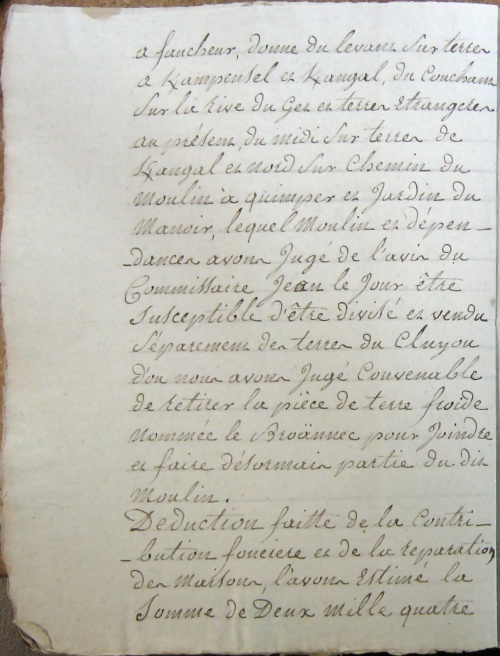 a faucheur, donne du levant sur terres
a Kampensel et Kangal, du Couchant
sur la Rive du Get et terres Etrangeres
au présent, du midi sur terres de
Kangal et nord sur Chemin du
moulin à quimper et Jardin du
Manoir, lequel Moulin et dépen-
-dances avons Jugé de l'avis du
Commissaire Jean le Jour être
susceptible d'être divisé et vendu
séparement des terres du Cluyou
d'ou nous avons Jugé Convenable
de retirer la pièce de terre froide
nommée le Broännec pour Joindre
et faire désormais partie du dit
moulin.
Deduction faitte de la Contri-
-bution fonciere et de la reparation
des Maisons, l'avons Estimé la
Somme de Deux mille quatre